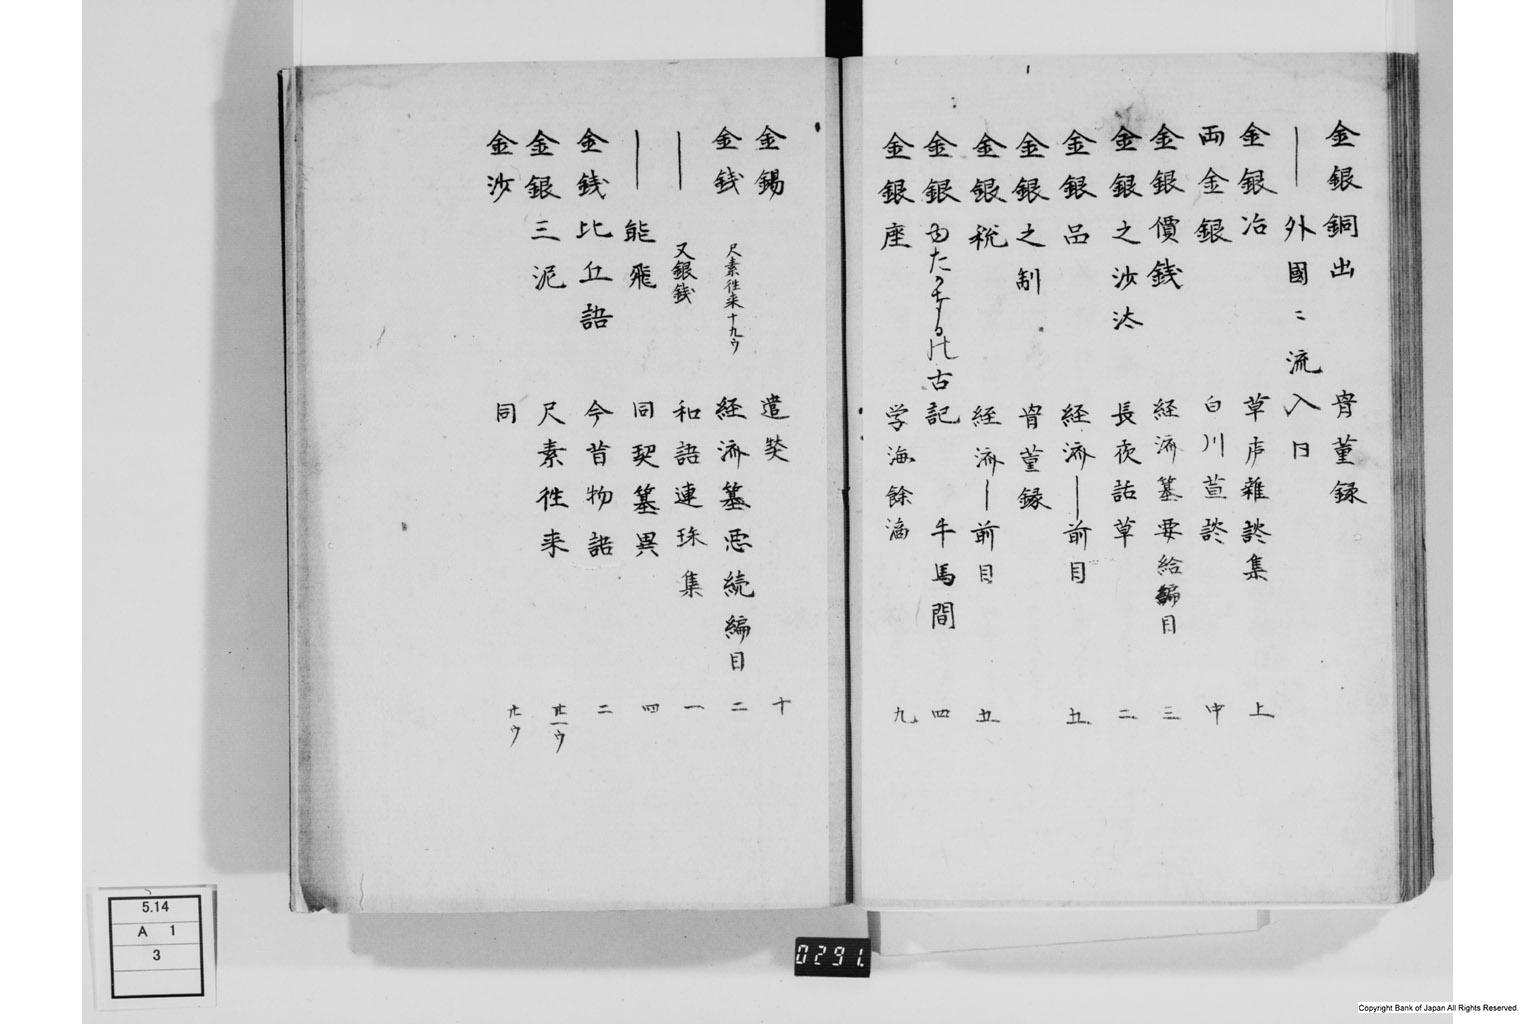 金銀銅出 骨董録
― 外國ニ流入日
金銀冶 草庐雜談集 上
両金銀 白川萱談 中
金銀價銭 経済纂要給編目 三
金銀之沙汰 長夜話草 二
金銀品 経済―前目 五
金銀之制 骨董録
金銀税 経済―前目 五
金銀 古記 牛馬間 四
金銀座 学海餘滴 九
金錫 遣 十
金銭 尺素徃来十九ウ 経済纂 続編目 二
― 又銀銭 和語連珠集 一
― 能飛 同契纂異 四
金銭比丘語 今昔物語 二
金銀三泥 尺素徃来 廿一ウ
金沙 同 廿ウ
5.14
A 1
3
0291.
Copyright Bank of Japan All Rights Reserved.